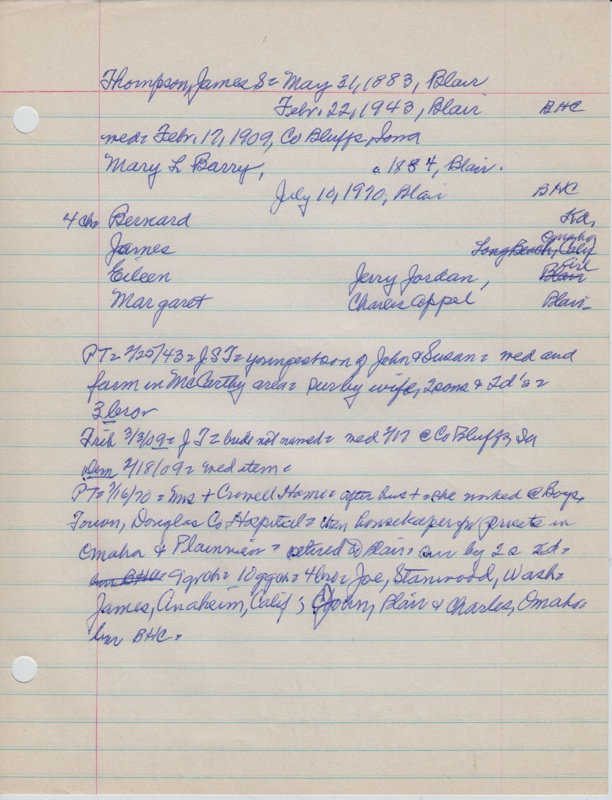 Thompson, James S = May 31, 1883, Blair
Febr. 22, 1943, Blair BHC
med = Febr. 17, 1909, Co Bluffs, Iowa
Mary L Barry, a 1884, Blair.
July 10, 1970, Blair BHC
4 chn Bernard Kd,
James Long Beach, Calif Omaha
Eileen Jerry Jordan, Blair
Margaret Charles Appel Blair
PT = 2/25/43 = J S T = youngest son of John & Susan = med and
farm in McCarthy area = sur by wife, 2 sons & 2 d's =
3 bros
Trib 3/3/09 = J T = bride not named = med 2/17 @ Co Bluffs, Ia
Dem 2/18/09 = med item =
PT = 7/16/70 = Mrs + Crowell Home = after hus + = she worked @ Boys
Town, Douglas Co Hospital = then housekeeper for priests in
Omaha & Plainview = retired to Blair = sur by 2 s 2d =
9 grch = 10 ggch = 4 bro = Joe, Stanwood, Wash =
James, Anaheim, Calif; John, Blair & Charles, Omaha =
bur BHC =